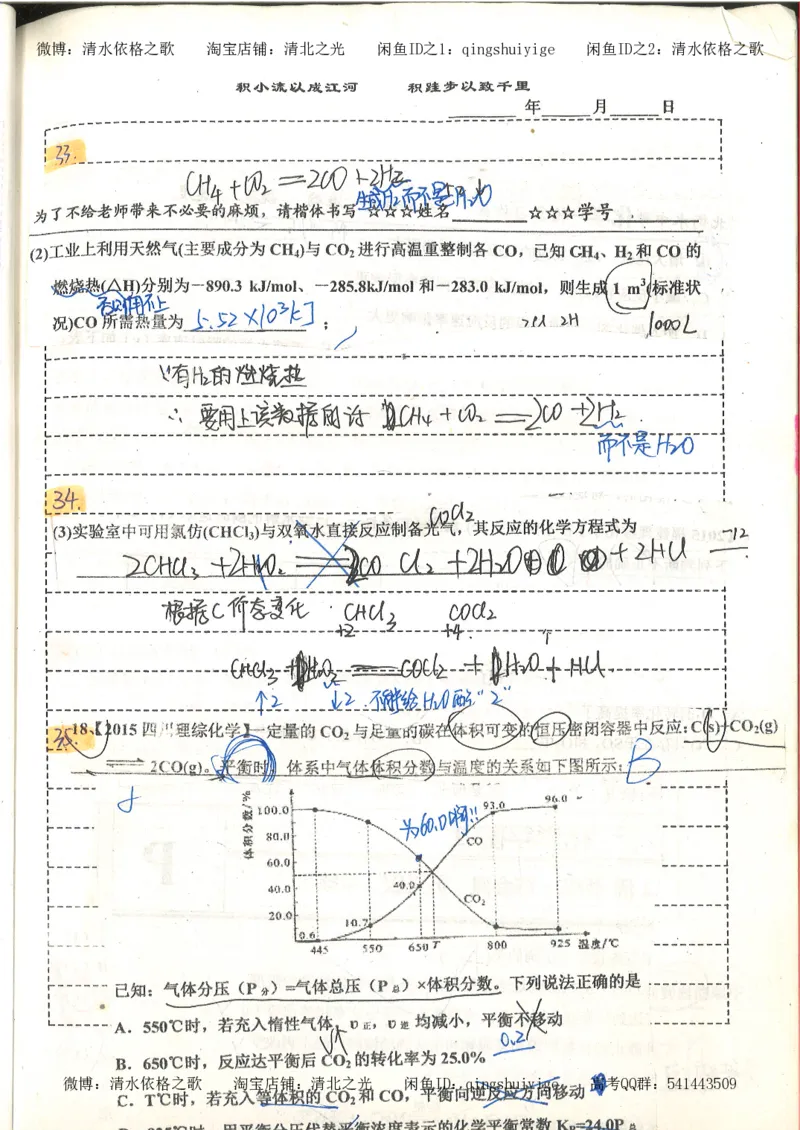 微博：清水依格之歌 淘宝店铺：清北之光 闲鱼ID之1：qingshuiyige 闲鱼ID之2：清水依格之歌
积小流以成江河 积跬步以致千里
年 月 日
33.
CH4 + CO2 == 2CO + 2H2
生成H2而不是H2O
为了不给老师带来不必要的麻烦，请楷体书写 ☆☆☆姓名 ☆☆☆学号
(2)工业上利用天然气(主要成分为 CH4)与 CO2 进行高温重整制备 CO，已知 CH4、H2 和 CO 的
燃烧热(△H)分别为－890.3 kJ/mol、－285.8kJ/mol 和－283.0 kJ/mol，则生成 1 m³(标准状
否则用不上
况)CO 所需热量为 5.52×10³kJ ；
1000L
∵有H2的燃烧热
∴ 要用上该数据的话 CH4 + CO2 == 2CO + 2H2
而不是H2O
34.
COCl2
(3)实验室中可用氯仿(CHCl3)与双氧水直接反应制备光气，其反应的化学方程式为
2CHCl3 + 2H2O2 == 2COCl2 + 2H2O + 2HCl
-12
根据C价态变化 CHCl3 COCl2
+2 +4
CHCl3 + H2O2 == COCl2 + H2O + HCl
↑2 ↓2 不能给H2O配"2"
35.
18、【2015 四川理综化学】一定量的 CO2 与足量的碳在体积可变的恒压密闭容器中反应：C(s)+CO2(g)
⇌ 2CO(g)。平衡时，体系中气体体积分数与温度的关系如下图所示： B
体积分数/%
100.0
80.0
60.0
40.0
20.0
为60.0啊!!
93.0
96.0
CO
40.0
CO2
10.7
0.6
445 550 650 T 800 925 温度/℃
已知：气体分压（P分）=气体总压（P总）×体积分数。下列说法正确的是
A．550℃时，若充入惰性气体，υ正，υ逆 均减小，平衡不移动
B．650℃时，反应达平衡后 CO2 的转化率为 25.0%
微博：清水依格之歌 淘宝店铺：清北之光 闲鱼ID：qingshuiyige 高考QQ群：541443509
C．T℃时，若充入等体积的 CO2 和 CO，平衡向逆反应方向移动
D．925℃时，用平衡分压代替平衡浓度表示的化学平衡常数 KP=24.0P总